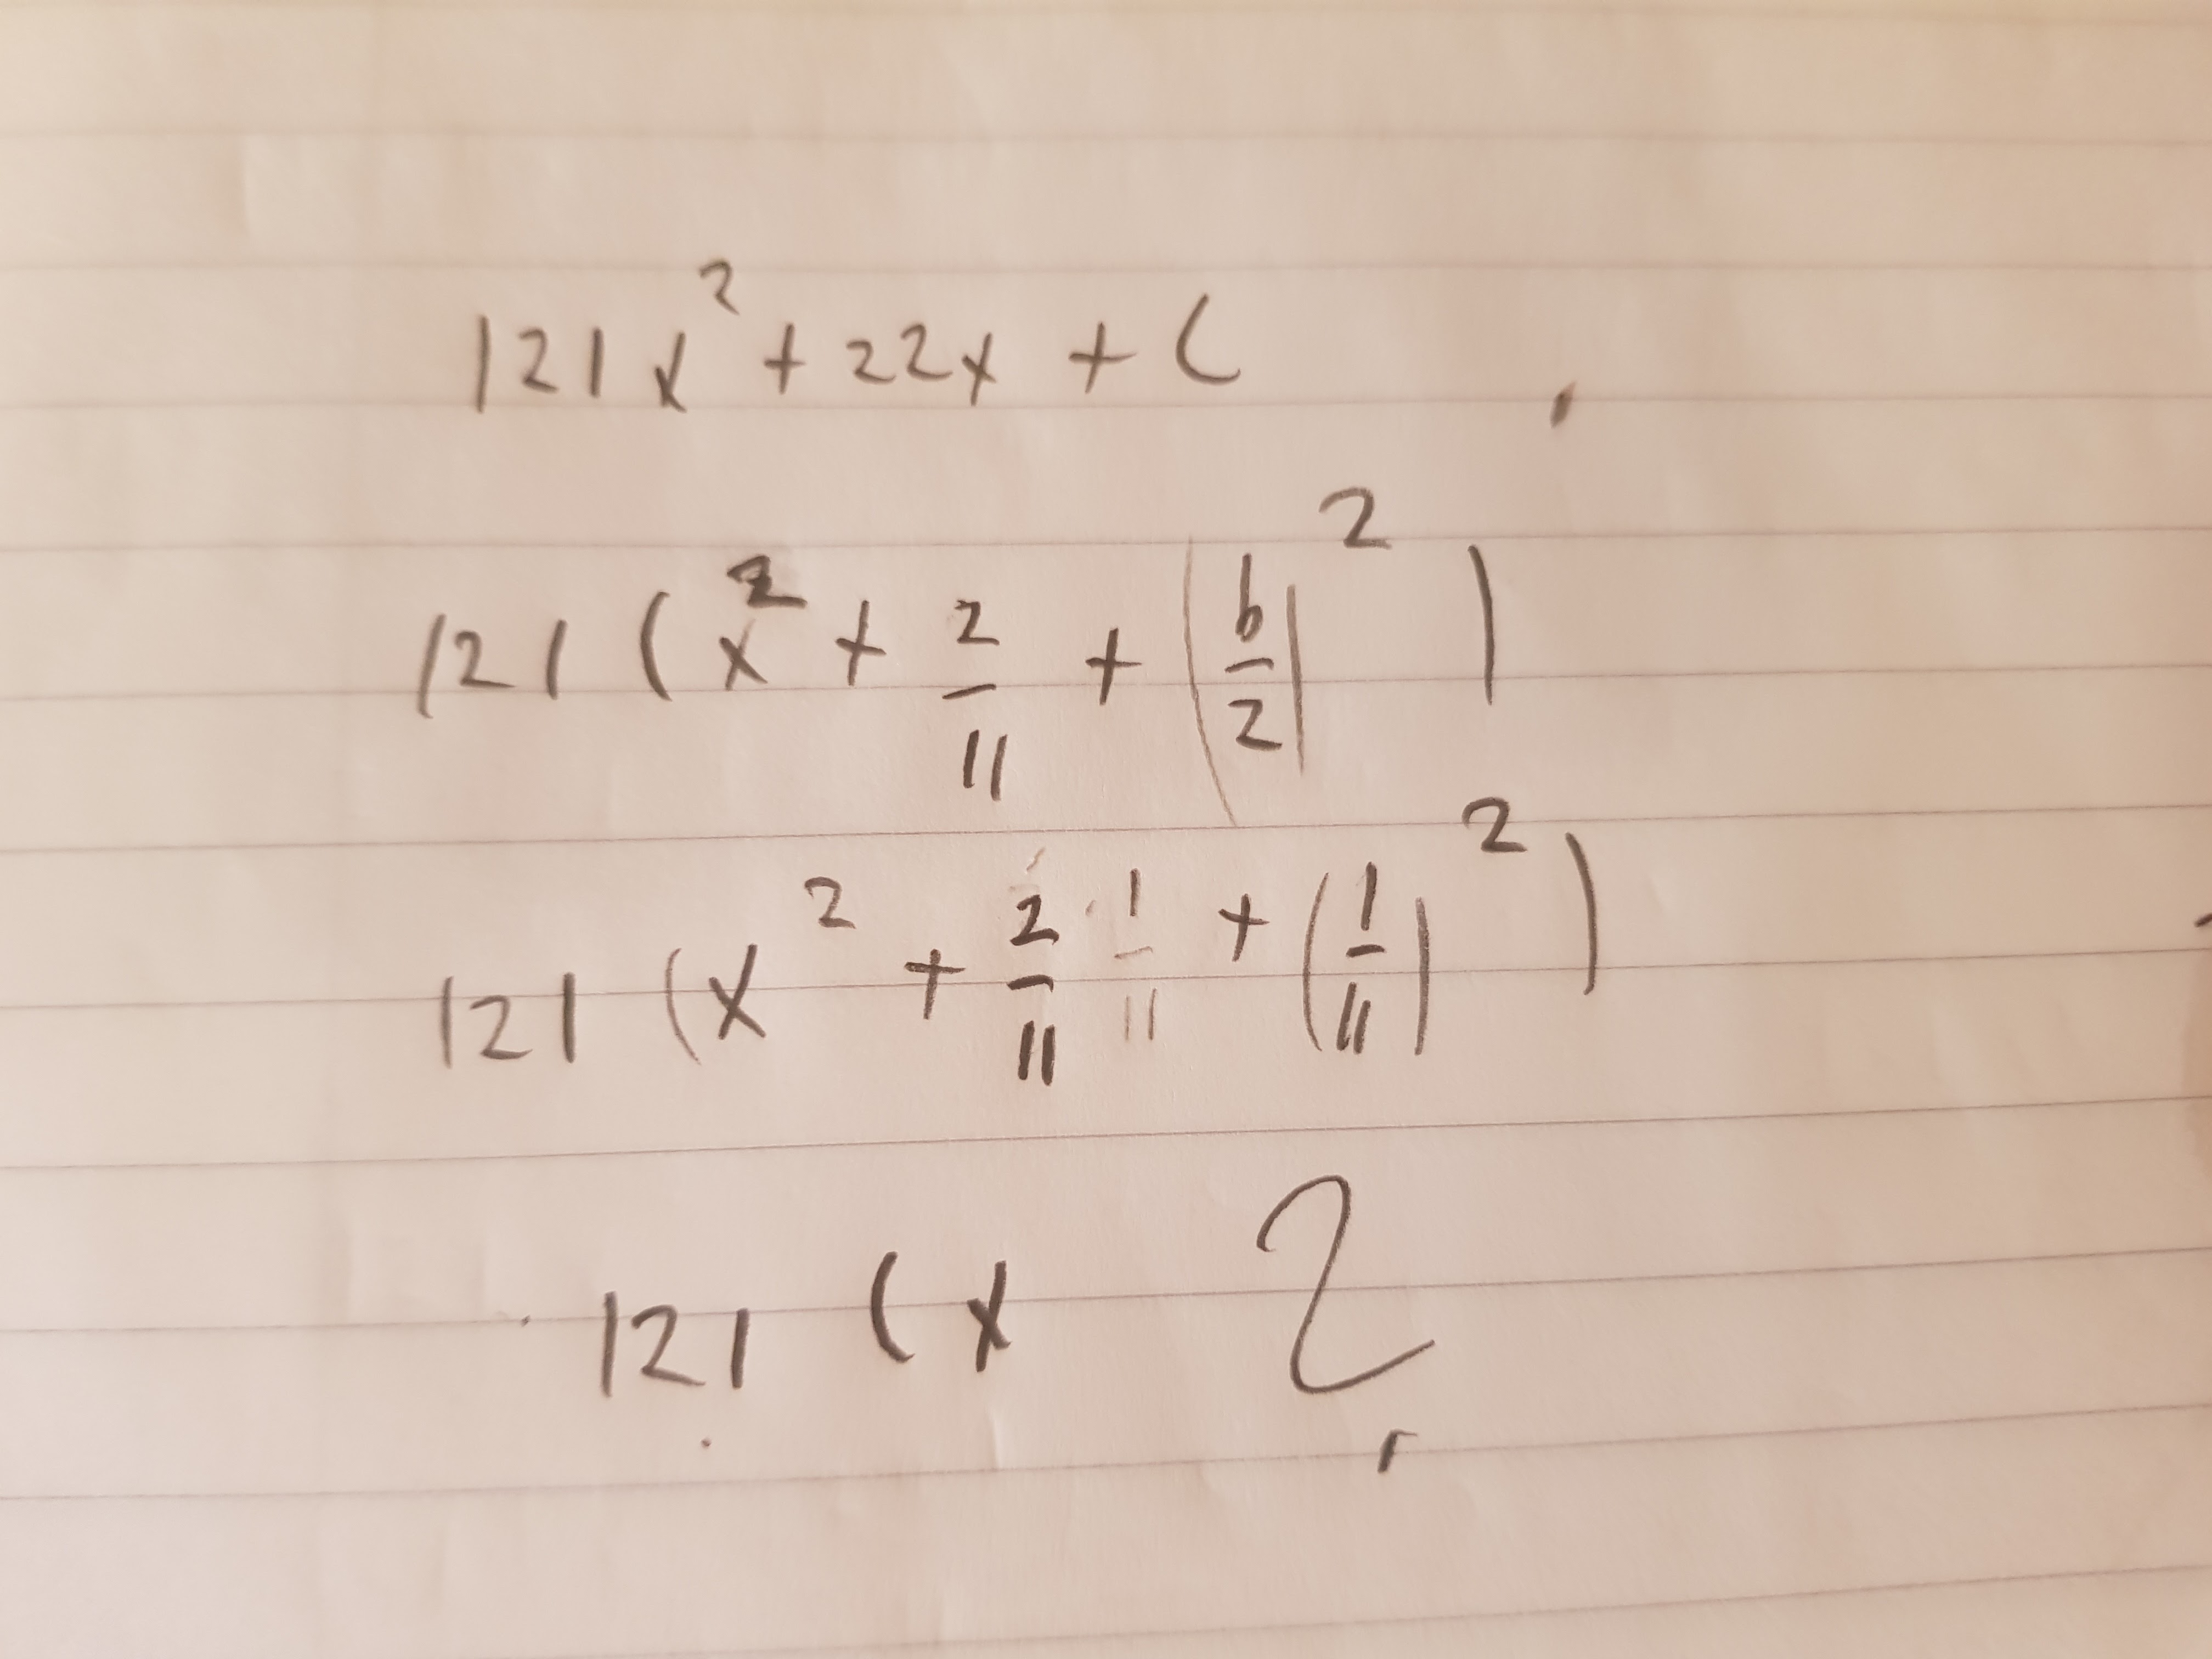 121x² + 22x + C
121 (x² + 2/11 + (b/2)² )
121 (x² + 2/11 · 1/11 + (1/11)² )
121 (x ?